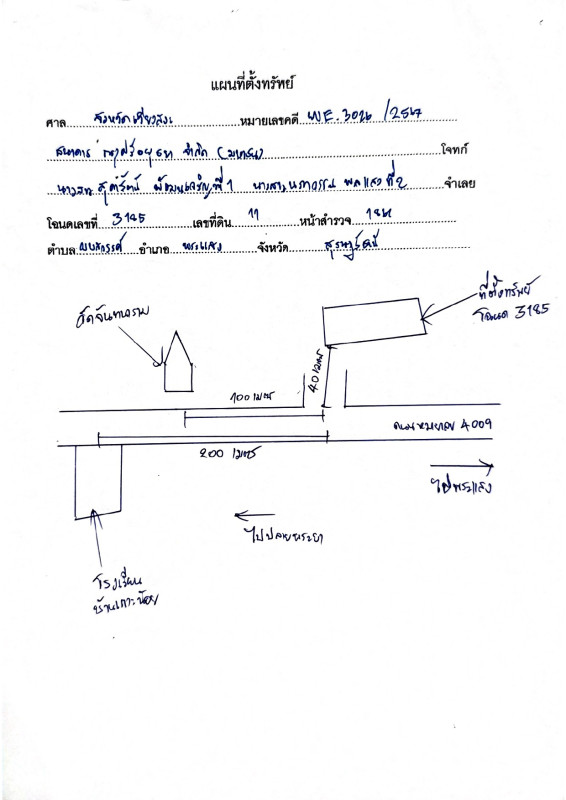 แผนที่ตั้งทรัพย์
ศาล จังหวัดเวียงสระ หมายเลขคดี ผบE.3026/2567
ธนาคาร กรุงศรีอยุธยา จำกัด (มหาชน) โจทก์
ที่ 1 ที่ 2 จำเลย
โฉนดเลขที่ 3185 เลขที่ดิน 11 หน้าสำรวจ
ตำบล อำเภอ พระแสง จังหวัด สุราษฎร์ธานี
ที่ตั้งทรัพย์
โฉนด 3185
วัดจันทาราม
40 เมตร
100 เมตร
ถนนหมายเลข 4009
200 เมตร
ไปพระแสง
ไปปลายพระยา
โรงเรียน
บ้านเกาะน้อย